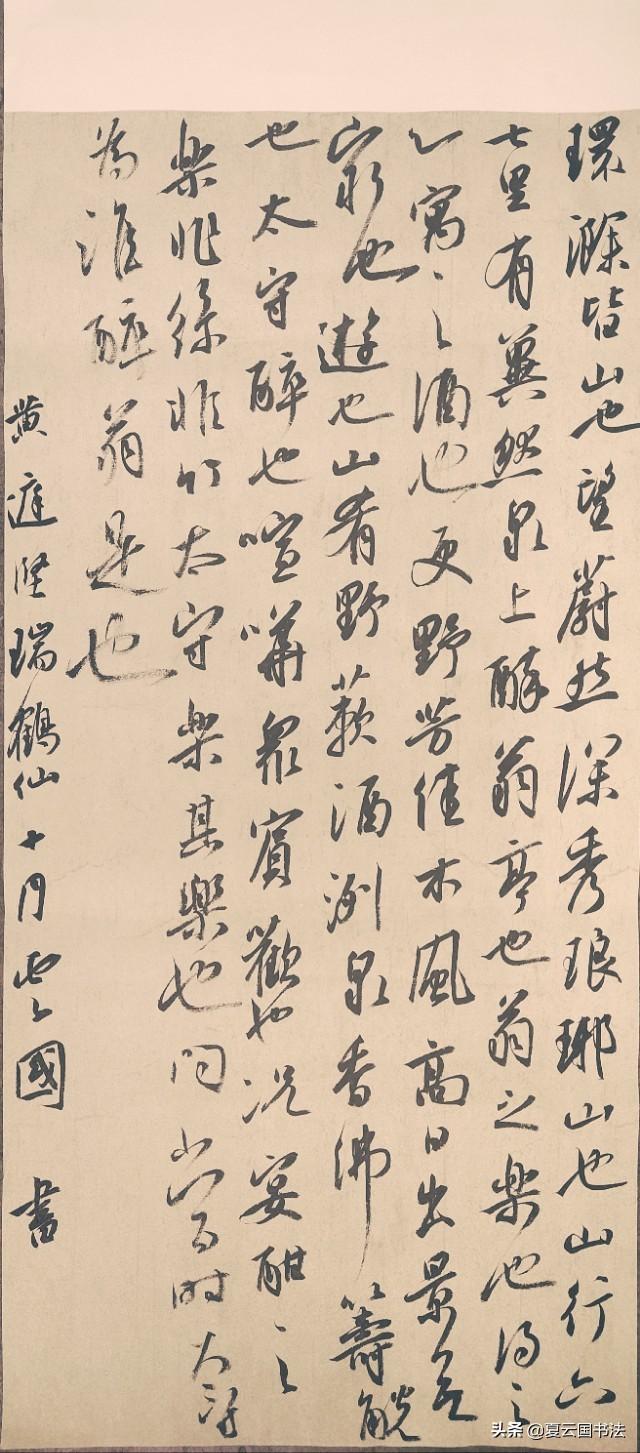 環滁皆山也望蔚然深秀琅琊山也山行六
七里有翼然泉上醉翁亭也翁之樂也得之
心寓之酒也更野芳佳木風高日出景無
窮也遊也山肴野蔌酒洌泉香沸籌觥
也太守醉也喧嘩眾賓歡也况宴酣之
樂非絲非竹太守樂其樂也問當時太守
為誰醉翁是也
黄庭堅瑞鶴仙十月雲國 書
头条 @夏云国书法